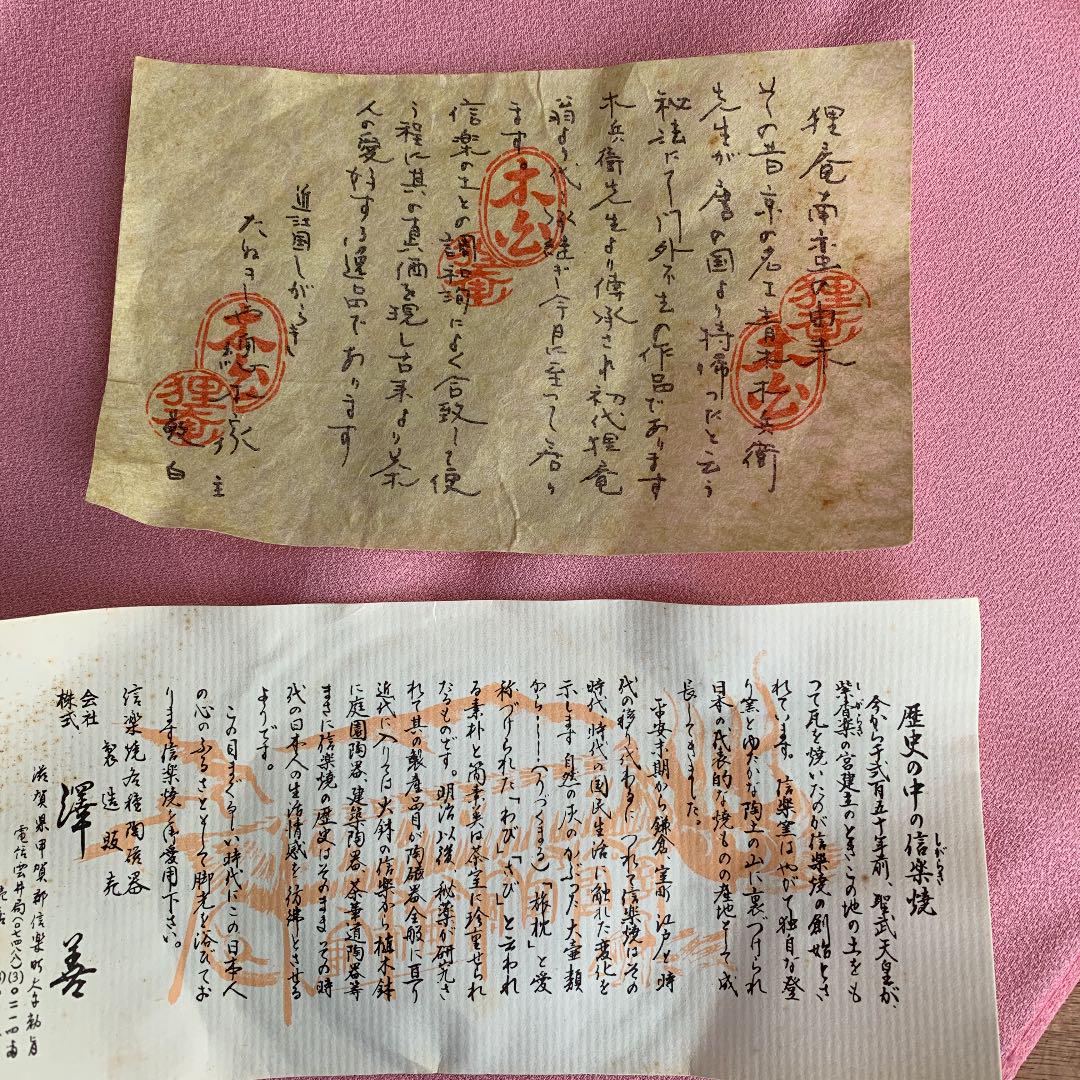 狸庵南蛮の由来
その昔京の名工青木木兵衛
先生が唐の国より持帰つたと云う
秘法にて門外不出の作品であります
木兵衛先生より傳承され初代狸庵
翁より代々承継ぎ今日に至つて居り
ます。
信楽の土との調和誠によく合致して使
う程に其の真価を現し古来より茶
人の愛好する逸品であります
近江国しがらき
たぬき
家
主
敬白
木公
狸庵
木公
狸庵
木公
狸庵
歴史の中の信楽焼
しがらき
今から千弐百五十年前、聖武天皇が、
紫香楽の宮建立のときこの地の土をも
しがらき
つて瓦を焼いたのが信楽焼の創始とさ
れています。信楽窯はやがて独自な登
り窯とゆたかな陶土の山に裏づけられ
日本の代表的な焼ものの産地として成
長してきました。
平安末期から鎌倉、室町、江戸と時
代の移り代わるにつれて信楽焼はその
時代、時代の国民生活に触れた変化を
示します自然の灰のかぶつた大壷類
から――(うづくまる)「旅枕」と愛
称づけられた「わび」「さび」と云われ
る素朴と簡素美は茶室に珍重せられ
たるものです。明治以後、秘薬が研究さ
れて其の製産品目が陶磁器全般に亘り
近代に入りては火鉢の信楽から植木鉢
に庭園陶器、建築陶器、茶華道陶器等
まさに信楽焼の歴史はそのまま その時
代の日本人の生活情感を彷彿とさせる
ようです。
この目まぐるしい時代にこの日本人
の心のふるさととして脚光を浴びてお
ります信楽焼を御愛用下さい。
信楽焼各種陶磁器
製造販売
株式会社 澤善
滋賀県甲賀郡信楽町大字勅旨
電話雲井局(〇七四八八)(3)〇二一四番